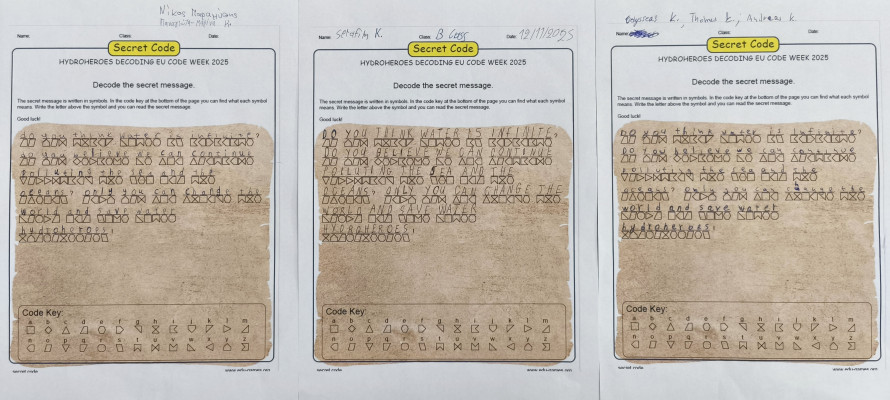 Nikos
Name:
Class:
Date:
Secret Code
HYDROHEROES DECODING EU CODE WEEK 2025
Decode the secret message.
The secret message is written in symbols. In the code key at the bottom of the page you can find what each symbol
means. Write the letter above the symbol and you can read the secret message.
Good luck!
Do you think water is infinite?
Do you believe we can continue
polluting the sea and the
oceans? only you can change the
world and save water
hydroheroes!
Code Key:
a b c d e f g h i j k l m
n o p q r s t u v w x y z
secret code
www.edu-games.org
Name: Serafim K.
Class: B Class
Date: 12/11/2025
Secret Code
HYDROHEROES DECODING EU CODE WEEK 2025
Decode the secret message.
The secret message is written in symbols. In the code key at the bottom of the page you can find what each symbol
means. Write the letter above the symbol and you can read the secret message.
Good luck!
DO YOU THINK WATER IS INFINITE?
DO YOU BELIEVE WE CAN CONTINUE
POLLUTING THE SEA AND THE
OCEANS? ONLY YOU CAN CHANGE THE
WORLD AND SAVE WATER
HYDROHEROES!
Code Key:
a b c d e f g h i j k l m
n o p q r s t u v w x y z
secret code
www.edu-games.org
Odysseas K., Thomas K., Andreas K.
Name:
Class:
Date:
Secret Code
HYDROHEROES DECODING EU CODE WEEK 2025
Decode the secret message.
The secret message is written in symbols. In the code key at the bottom of the page you can find what each symbol
means. Write the letter above the symbol and you can read the secret message.
Good luck!
Do you think water is infinite?
Do you believe we can continue
polluting the sea and the
oceans? only you can change the
world and save water
hydroheroes!
Code Key:
a b c d e f g h i j k l m
n o p q r s t u v w x y z
secret code
www.edu-games.org